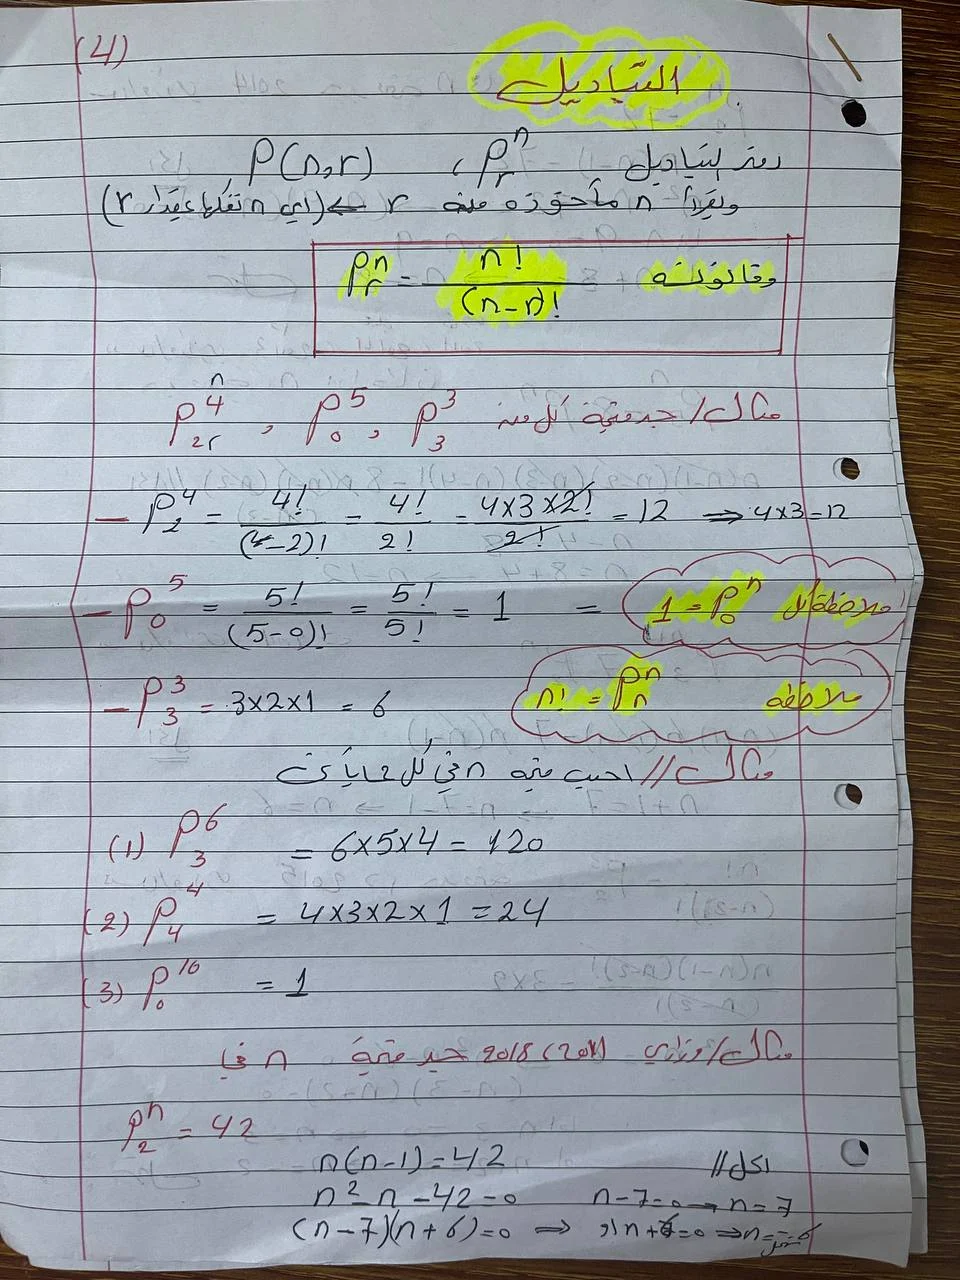 (4)
التباديل
رمز التباديل P^n_r ، P(n,r)
ويقرأ n مأخوذه منه r ← (اي n نفكها بمقدار r)
وقانونه P^n_r = n! / (n-r)!
مثال/ جد قيمة كل من P^3_3 , P^5_0 , P^4_2 n r
- P^4_2 = 4!/(4-2)! = 4!/2! = 4×3×2!/2! = 12 ⇒ 4×3=12
- P^5_0 = 5!/(5-0)! = 5!/5! = 1 = ملاحظة P^n_0 = 1
- P^3_3 = 3×2×1 = 6 ملاحظه P^n_n = n!
مثال// احسب قيمة n في كل مما يأتي
(1) P^6_3 = 6×5×4 = 120
(2) P^4_4 = 4×3×2×1 = 24
(3) P^10_0 = 1
مثال/ وزاري 2018 جد قيمة n في
P^n_2 = 42
الحل// n(n-1)=42
n²-n-42=0 n-7=0 → n=7
(n-7)(n+6)=0 ⇒ او n+6=0 ⇒ n=-6